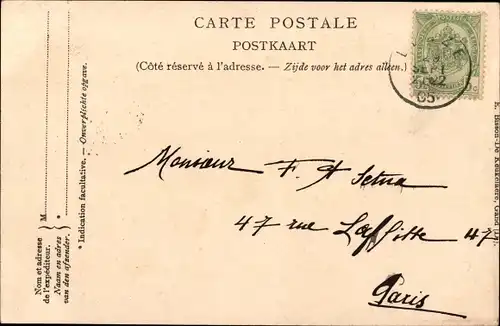 CARTE POSTALE
POSTKAART
(Côté réservé à l'adresse. — Zijde voor het adres alleen.)
SEPT
05
Monsieur F. A Setna
47 rue Laffitte 47
Paris
M
*
Nom et adresse de l'expéditeur.
Naam en adres van den afzender.
* Indication facultative. — Onverplichte opgave.